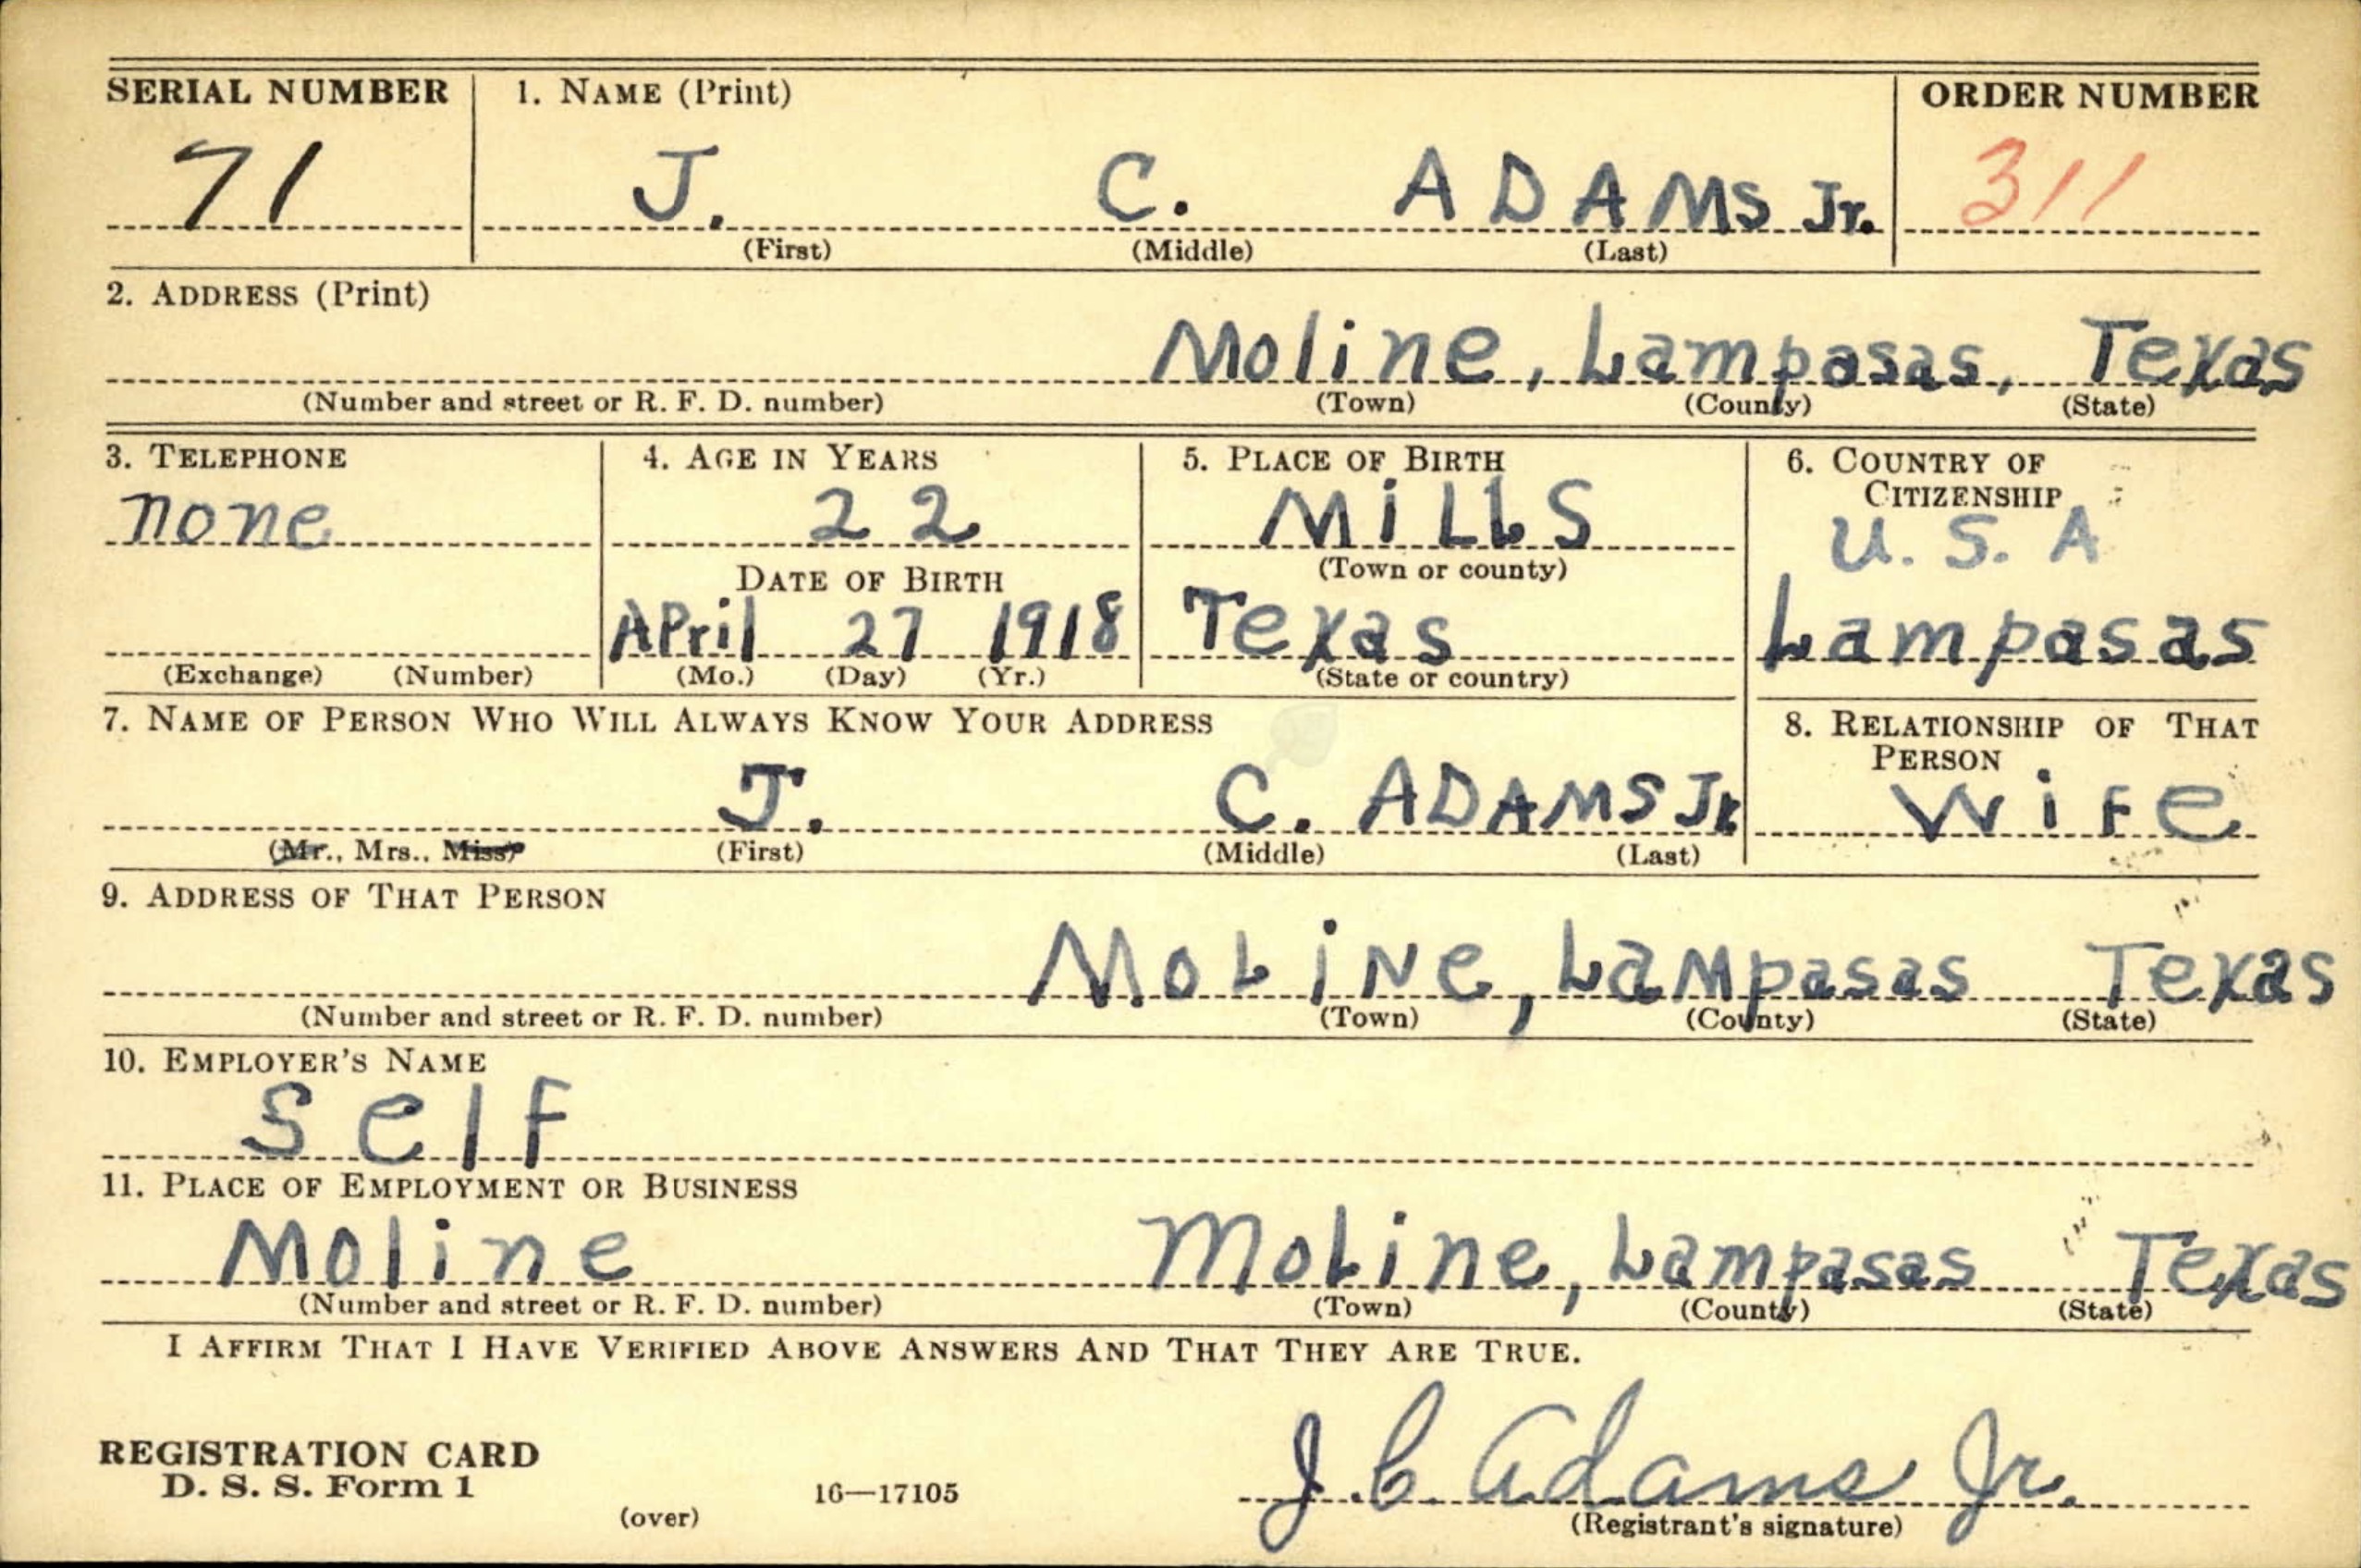 SERIAL NUMBER 1. NAME (Print) ORDER NUMBER
71 J. C. ADAMS Jr. 311
(First) (Middle) (Last)
2. ADDRESS (Print)
Moline, Lampasas, Texas
(Number and street or R. F. D. number) (Town) (County) (State)
3. TELEPHONE 4. AGE IN YEARS 5. PLACE OF BIRTH 6. COUNTRY OF CITIZENSHIP
none 22 MiLLS U. S. A
DATE OF BIRTH (Town or county)
APril 27 1918 Texas Lampasas
(Exchange) (Number) (Mo.) (Day) (Yr.) (State or country)
7. NAME OF PERSON WHO WILL ALWAYS KNOW YOUR ADDRESS 8. RELATIONSHIP OF THAT PERSON
J. C. ADAMS Jr WiFe
(Mr., Mrs., Miss) (First) (Middle) (Last)
9. ADDRESS OF THAT PERSON
MOLiNe, LaMpasas Texas
(Number and street or R. F. D. number) (Town) (County) (State)
10. EMPLOYER'S NAME
SelF
11. PLACE OF EMPLOYMENT OR BUSINESS
Moline MoLine, Lampasas Texas
(Number and street or R. F. D. number) (Town) (County) (State)
I AFFIRM THAT I HAVE VERIFIED ABOVE ANSWERS AND THAT THEY ARE TRUE.
REGISTRATION CARD
D. S. S. Form 1 16—17105 J C Adams Jr.
(over) (Registrant's signature)